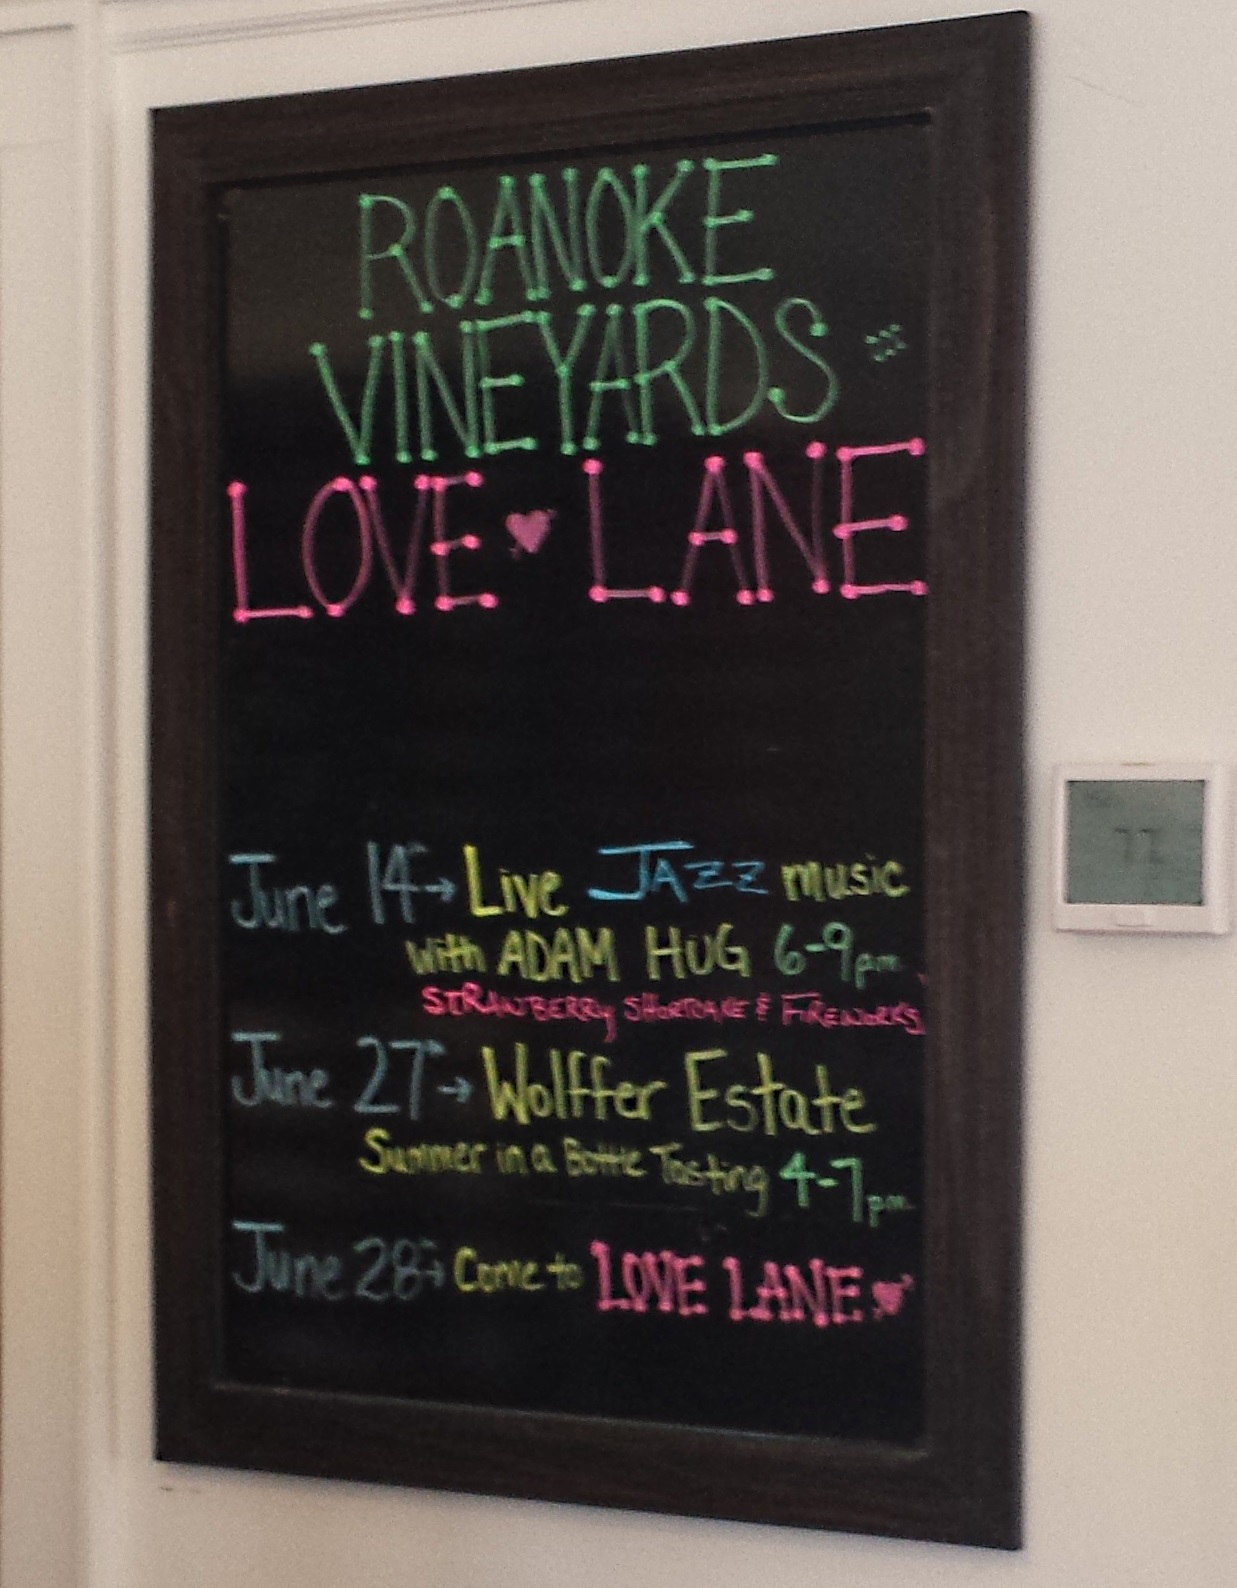 ROANOKE
VINEYARDS
LOVE LANE
June 14th → Live JAZZ music
with ADAM HUG 6-9pm
STRAWBERRY SHORTCAKE & FIREWORKS
June 27th → Wolffer Estate
Summer in a Bottle Tasting 4-7pm
June 28th → Come to LOVE LANE